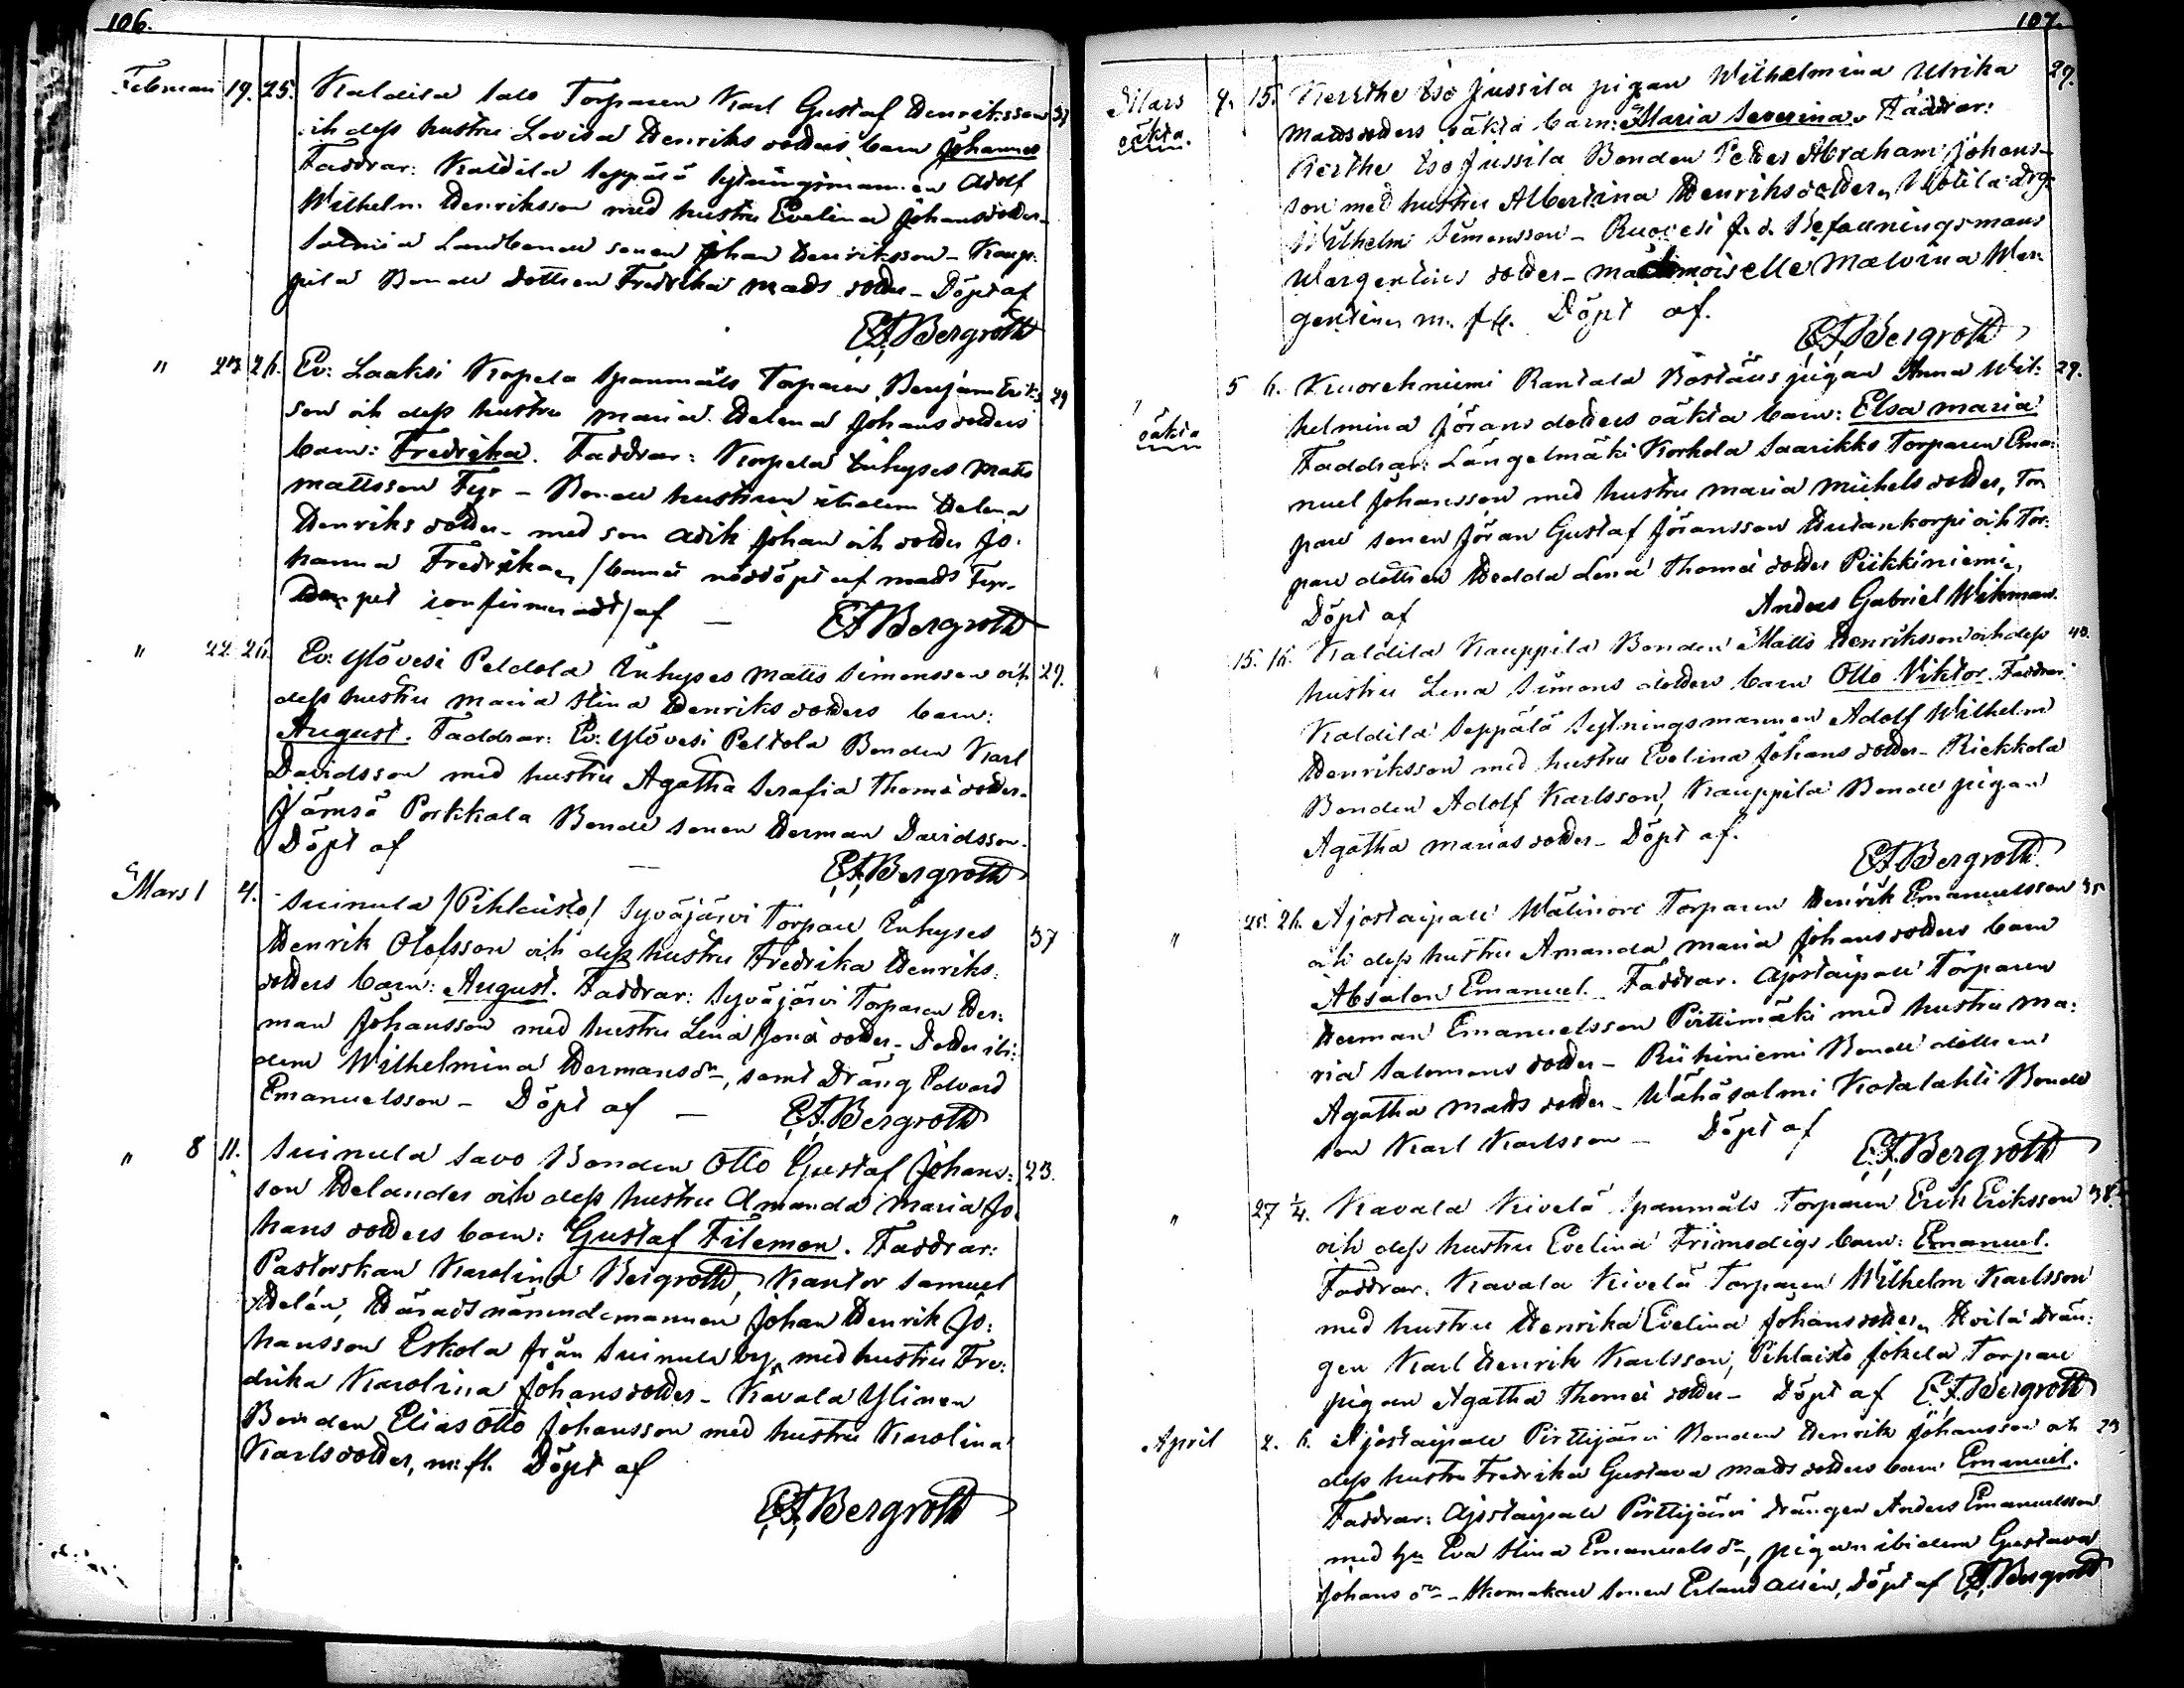 106.
Februari 19. 25. Kaldila Salo Torparen Karl Gustaf Henriksson 37
och dess hustru Lovisa Henriks dotters barn Johannes
Faddrar: Kaldila Seppälä Sytningsmannen Adolf
Wilhelm Henriksson med hustru Evelina Johansdotter –
Landbonde sonen Johan Henriksson – Kaup-
pila Bonde dottren Fredrika Mads dotter – Döpt af
E.F. Bergroth
" 23 26. Ev: Laaksi Korpela Spanmåls Torparen Benjam Eriks 29
son och dess hustru Maria Helena Johans dotters
barn: Fredrika. Faddrar: Korpela Inhyses Matts
Mattsson Fyr – Bonde hustrun ibidem Helena
Henriks dotter – med son Adik Johan och dotter Jo-
hanna Fredrika, /barnet nöddöpt af Mads Fyr.
Dopet confirmeradt/ af – E.F. Bergroth
" 22 26. Ev: Ylövesi Peldola Inhyses Matts Simonsson och 29.
dess hustru Maria Stina Henriks dotters barn:
August. Faddrar: Ev: Ylövesi Peltola Bonden Karl
Davidsson med hustru Agatha Serafia Thomæ dotter –
Jämsä Porkkala Bonde sonen Herman Davidsson.
Döpt af – E.F. Bergroth
Mars 1 4. Suinula /Pihlaisto/ Syväjärvi Torpare Inhyses 37
Henrik Olofsson och dess hustru Fredrika Henriks:
dotters barn: August. Faddrar: Syväjärvi Torparen Her:
man Johansson med hustru Lena Jona dotter – Dotter ibi:
dem Wilhelmina Hermansdr, samt Dräng Edvard
Emanuelsson – Döpt af – E.F. Bergroth
" 8 11. Suinula Savo Bonden Otto Gustaf Johans: 23.
son Helander och dess hustru Amanda Maria Jo
hans dotters barn: Gustaf Filemon. Faddrar:
Pastorskan Karolina Bergroth, Kantor Samuel
Helén, Häradsnämndemannen Johan Henrik Jo:
hansson Eskola från Suinula by, med hustru Fre:
drika Karolina Johansdotter – Kavala Ylinen
Bonden Elias Otto Johansson med hustru Karolina
Karlsdotter, m: fl. Döpt af
E.F. Bergroth
107.
Mars 4. 15. Kerthe Iso Jussila pigan Wilhelmina Ulrika 27.
oäkta. Madsdotters oäkta barn: Maria Severina. Faddrar:
Kerthe Iso Jussila Bonden Peter Abraham Johans-
son med hustru Albertina Henriksdotter,
Wilhelm Simonsson – Ruovesi f. d. Befallningsmans
Wargentins dotter – Mademoiselle Malvina War:
gentins m. fl. Döpt af.
E.F. Bergroth
5 6. Kuorehniemi Rantala Böstäus pigan Anna Wil: 29.
oäkta helmina Jörans dotters oäkta barn: Elsa Maria
Faddrar: Längelmäki Korkola Saarikko Torparen Ema:
nuel Johansson med hustru Maria Michels dotter, Tor
pare sonen Jöran Gustaf Jöransson Hutankorpi och Tor:
pare dottren Hedda Lena Thomæ dotter Piikkiniemi,
Döpt af Anders Gabriel Wikman.
" 15. 16. Kaldila Kauppila Bonden Matts Henriksson och dess 40.
hustru Lena Simons dotters barn Otto Viktor. Faddrar
Kaldila Seppälä Sytningsmannen Adolf Wilhelm
Henriksson med hustru Evelina Johans dotter – Riekkola
Bonden Adolf Karlsson, Kauppila Bonde pigan
Agatha Marias dotter – Döpt af.
E.F. Bergroth
" 25. 26. Ajostaipale Wälinori Torparen Henrik Emanuelsson 35
och dess hustru Amanda Maria Johans dotters barn
Absalon Emanuel. Faddrar. Ajostaipale Torparen
Herman Emanuelsson Pirttimäki med hustru Ma:
ria Salomons dotter – Riihiniemi Bonde dottren
Agatha Mads dotter – Wähäsalmi Kotalahti Bonde
son Karl Karlsson – Döpt af
E.F. Bergroth
" 27 1/4. Kavala Kivelä Spanmåls Torparen Erik Eriksson 38.
och dess hustru Evelina Frimodigs barn: Emanuel.
Faddrar. Kavala Kivelä Torparen Wilhelm Karlsson
med hustru Henrika Evelina Johansdotter, Hoila drän:
gen Karl Henrik Karlsson, Pihlaisto Jokela Torpare
pigan Agatha Thomæ dotter – Döpt af E.F. Bergroth
April 2. 6. Ajostaipale Pirttijärvi Bonden Henrik Johansson och 29
dess hustru Fredrika Gustava Mads dotters barn Emanuel.
Faddrar: Ajostaipale Pirttijärvi drängen Anders Emanuelsson
med hu Eva Stina Emanuels dr, pigan ibidem Gustava
Johans dr – Skomakare sonen Erland Allén, Döpt af E.F. Bergroth